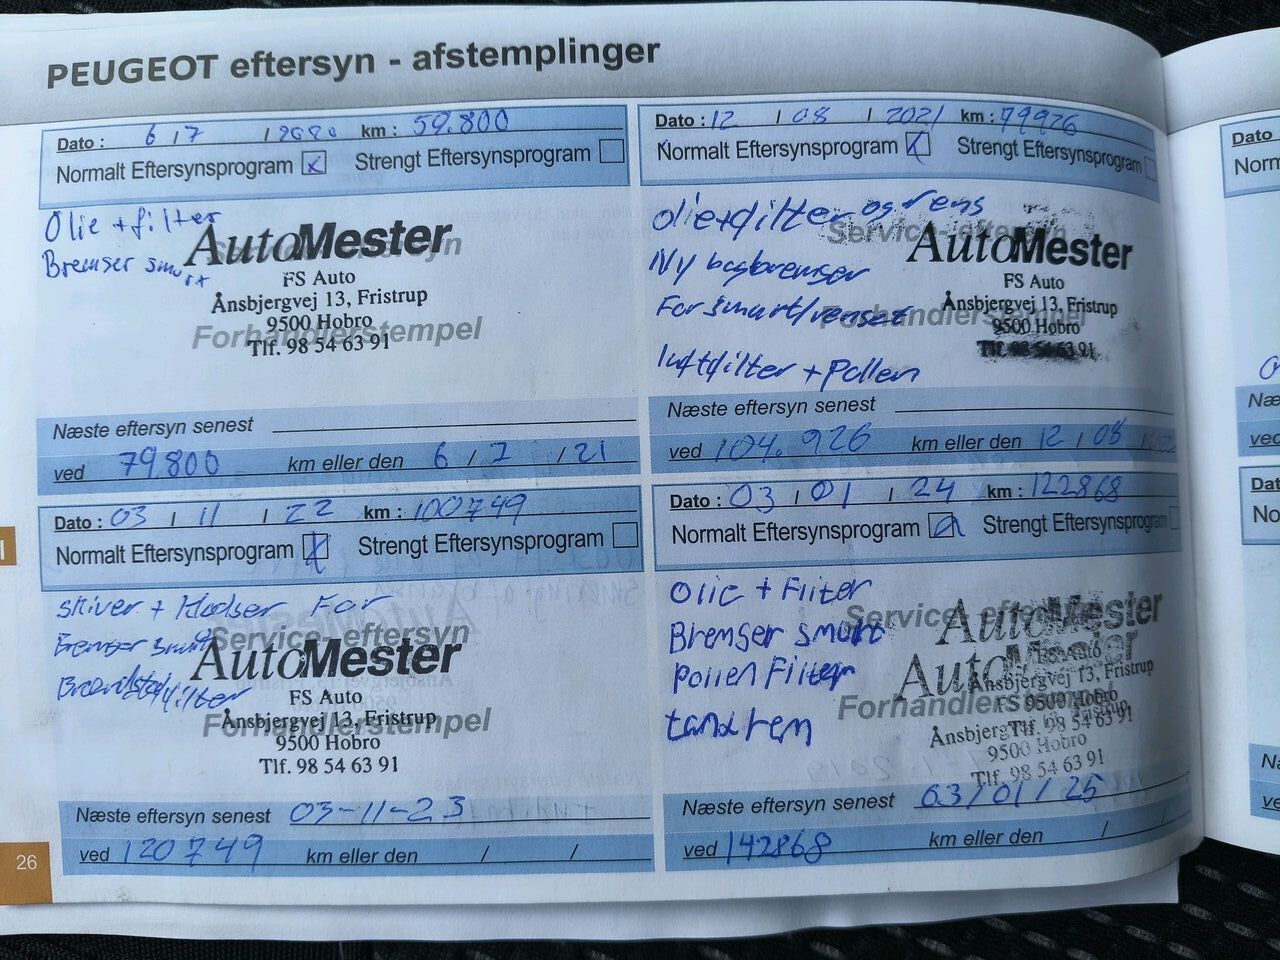 PEUGEOT eftersyn - afstemplinger
Dato : 6 / 7 / 2020 km : 59.800
Normalt Eftersynsprogram x Strengt Eftersynsprogram
Olie + filter
Bremser smurt
Service-eftersyn
AutoMester
FS Auto
Ånsbjergvej 13, Fristrup
9500 Hobro
Forhandlerstempel
Tlf. 98 54 63 91
Næste eftersyn senest
ved 79.800 km eller den 6 / 7 / 21
Dato : 12 / 08 / 2021 km : 79926
Normalt Eftersynsprogram x Strengt Eftersynsprogram
olie+filter og rens
Ny bagbremser
For smurt/renset
luftfilter + Pollen
Service-eftersyn
AutoMester
FS Auto
Ånsbjergvej 13, Fristrup
9500 Hobro
Forhandlerstempel
Tlf. 98 54 63 91
Næste eftersyn senest
ved 104.926 km eller den 12 / 08 /
Dato : 03 / 11 / 22 km : 100749
Normalt Eftersynsprogram x Strengt Eftersynsprogram
skiver + Klodser For
Bremser smurt
Brændstoffilter
Service-eftersyn
AutoMester
FS Auto
Ånsbjergvej 13, Fristrup
Forhandlerstempel
9500 Hobro
Tlf. 98 54 63 91
Næste eftersyn senest 03-11-23
ved 120749 km eller den / /
Dato : 03 / 01 / 24 km : 122868
Normalt Eftersynsprogram Strengt Eftersynsprogram
Olie + Filter
Bremser smurt
Pollen Filter
tandrem
Service-eftersyn
AutoMester
AutoMester
FS Auto
Ånsbjergvej 13, Fristrup
FS Auto
9500 Hobro
Forhandlerstempel
Ånsbjerg
Tlf. 98 54 63 91
9500 Hobro
Tlf. 98 54 63 91
Næste eftersyn senest 03/01/25
ved 142868 km eller den / /
26
Dato
Norm
Næ
ved
Dat
No
Næ
ve